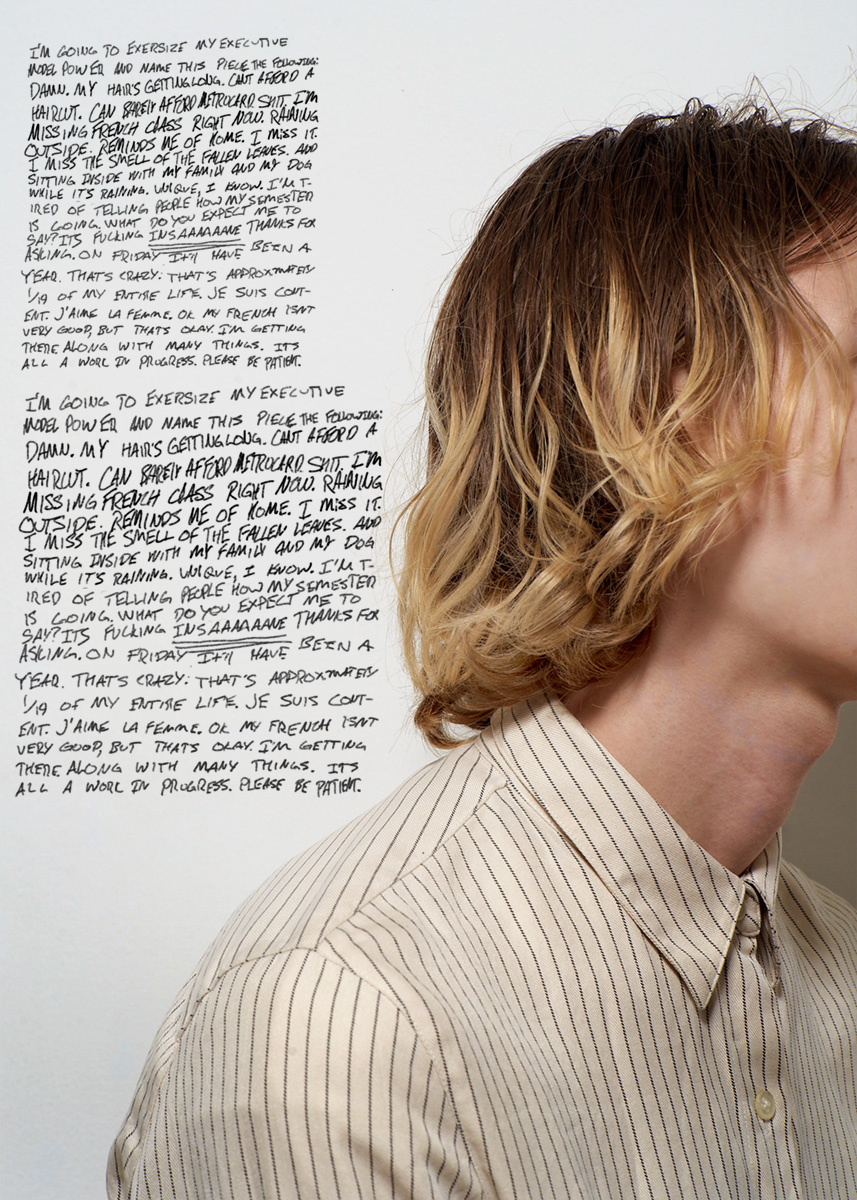 I'M GOING TO EXERSIZE MY EXECUTIVE
MODEL POWER AND NAME THIS PIECE THE FOLLOWING:
DAMN. MY HAIR'S GETTING LONG. CANT AFFORD A
HAIRCUT. CAN BARELY AFFORD METROCARD. SHIT. I'M
MISSING FRENCH CLASS RIGHT NOW. RAINING
OUTSIDE. REMINDS ME OF HOME. I MISS IT.
I MISS THE SMELL OF THE FALLEN LEAVES. AND
SITTING INSIDE WITH MY FAMILY AND MY DOG
WHILE IT'S RAINING. UNIQUE, I KNOW. I'M T-
IRED OF TELLING PEOPLE HOW MY SEMESTER
IS GOING. WHAT DO YOU EXPECT ME TO
SAY? ITS FUCKING INSAAAAAANE THANKS FOR
ASKING. ON FRIDAY IT'll HAVE BEEN A
YEAR. THAT'S CRAZY: THAT'S APPROXIMATELY
1/19 OF MY ENTIRE LIFE. JE SUIS CONT-
ENT. J'AIME LA FEMME. OK MY FRENCH ISNT
VERY GOOD, BUT THATS OKAY. I'M GETTING
THERE ALONG WITH MANY THINGS. ITS
ALL A WORK IN PROGRESS. PLEASE BE PATIENT.
I'M GOING TO EXERSIZE MY EXECUTIVE
MODEL POWER AND NAME THIS PIECE THE FOLLOWING:
DAMN. MY HAIR'S GETTING LONG. CANT AFFORD A
HAIRCUT. CAN BARELY AFFORD METROCARD. SHIT. I'M
MISSING FRENCH CLASS RIGHT NOW. RAINING
OUTSIDE. REMINDS ME OF HOME. I MISS IT.
I MISS THE SMELL OF THE FALLEN LEAVES. AND
SITTING INSIDE WITH MY FAMILY AND MY DOG
WHILE IT'S RAINING. UNIQUE, I KNOW. I'M T-
IRED OF TELLING PEOPLE HOW MY SEMESTER
IS GOING. WHAT DO YOU EXPECT ME TO
SAY? ITS FUCKING INSAAAAAANE THANKS FOR
ASKING. ON FRIDAY IT'll HAVE BEEN A
YEAR. THAT'S CRAZY: THAT'S APPROXIMATELY
1/19 OF MY ENTIRE LIFE. JE SUIS CONT-
ENT. J'AIME LA FEMME. OK MY FRENCH ISNT
VERY GOOD, BUT THATS OKAY. I'M GETTING
THERE ALONG WITH MANY THINGS. ITS
ALL A WORK IN PROGRESS. PLEASE BE PATIENT.